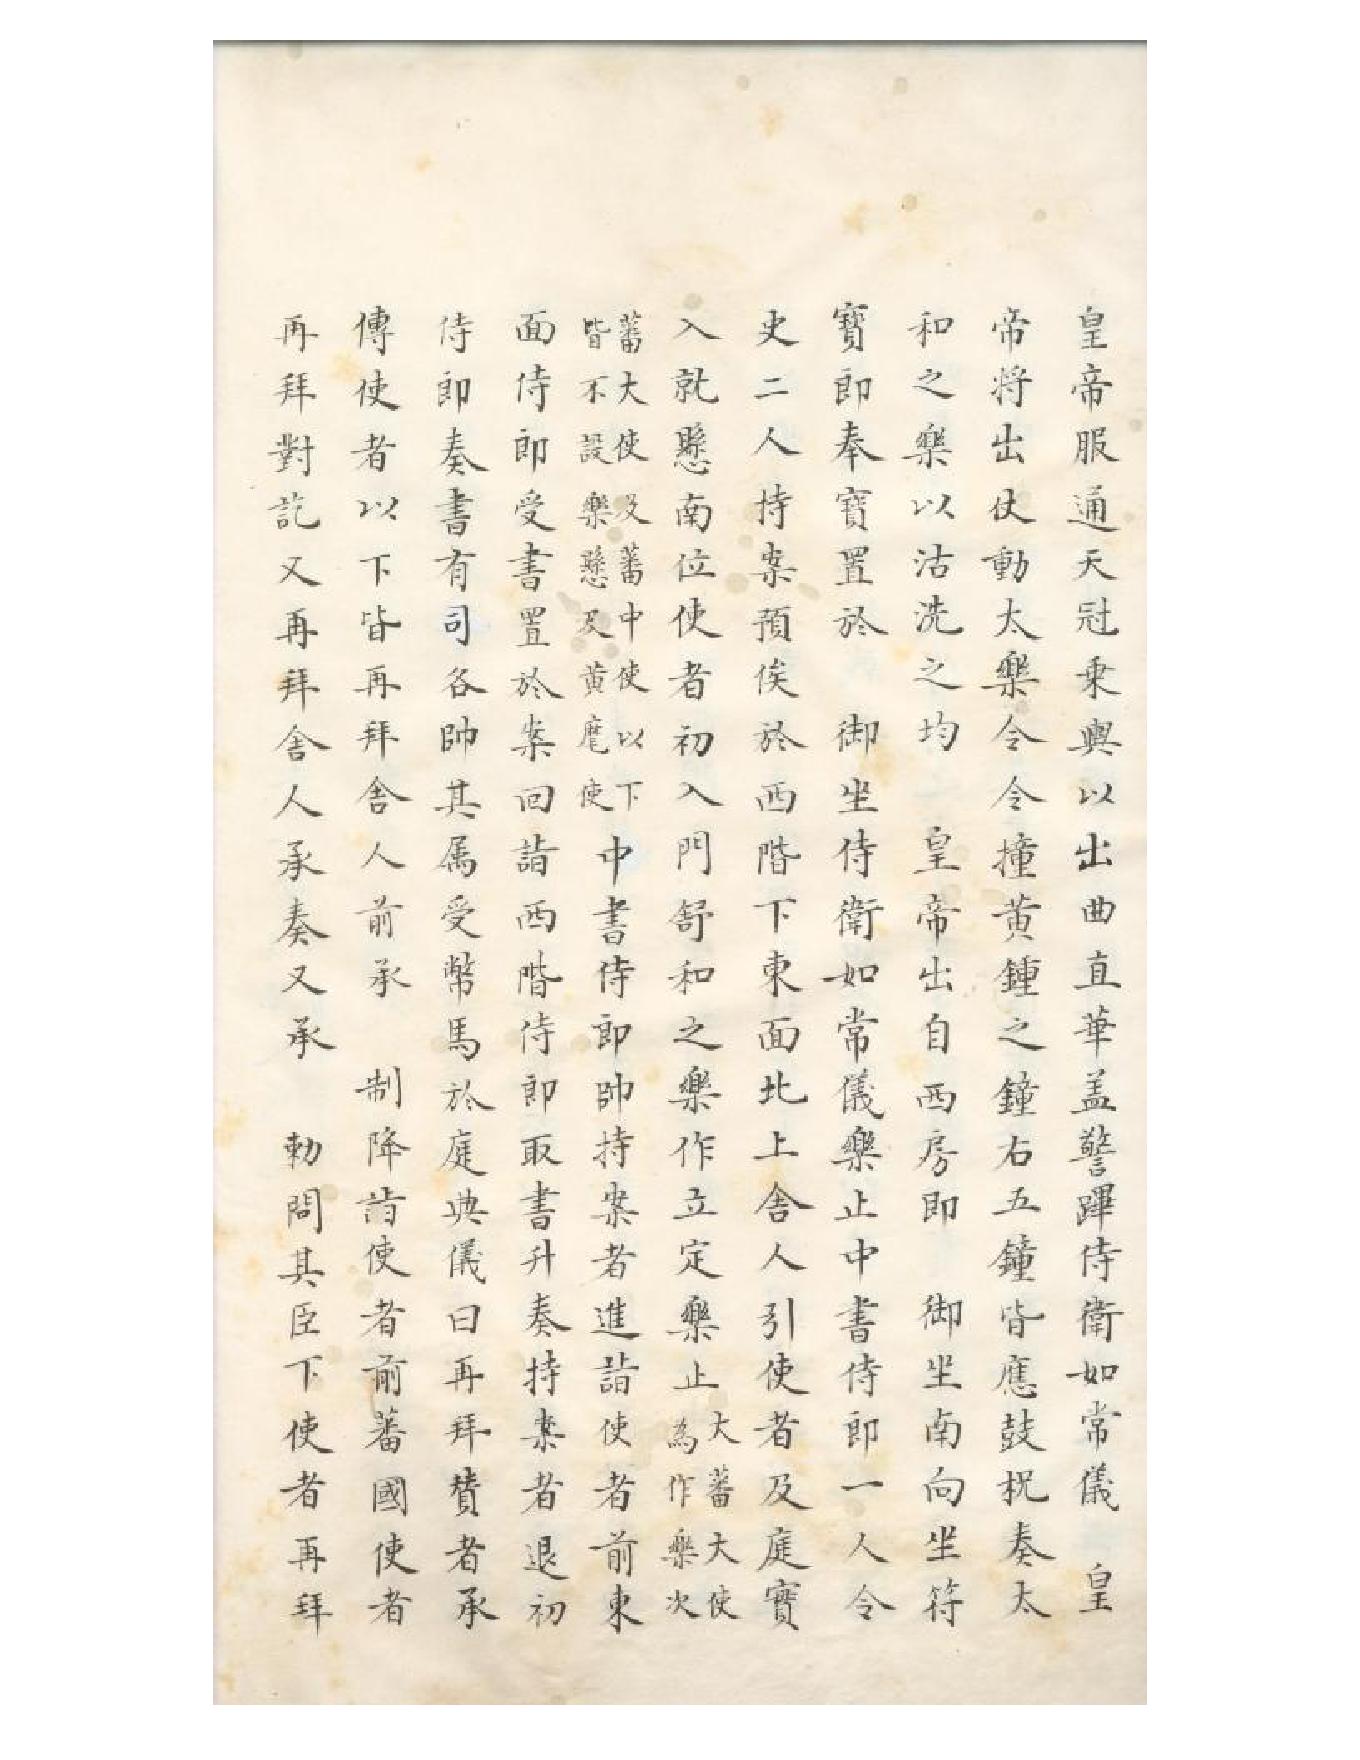 皇帝服通天冠乗輿以出曲直華盖警蹕侍衛如常儀　皇
帝将出仗動太樂令令撞黄鍾之鐘右五鐘皆應鼓柷奏太
和之樂以沽洗之均　皇帝出自西房即　御坐南向坐符
寳郎奉寳置於　御坐侍衛如常儀樂止中書侍郎一人令
史二人持案預俟於西階下東面北上舎人引使者及庭寳
入就懸南位使者初入門舒和之樂作立定樂止大蕃大使為作樂次
蕃大使及蕃中使以下皆不設樂懸及黄麾使中書侍郎帥持案者進詣使者前東
面侍郎受書置於案回詣西階侍郎取書升奏持案者退初
侍郎奏書有司各帥其属受幣馬於庭典儀曰再拜賛者承
傳使者以下皆再拜舎人前承　制降詣使者前蕃國使者
再拜對訖又再拜舎人承奏又承　勅問其臣下使者再拜